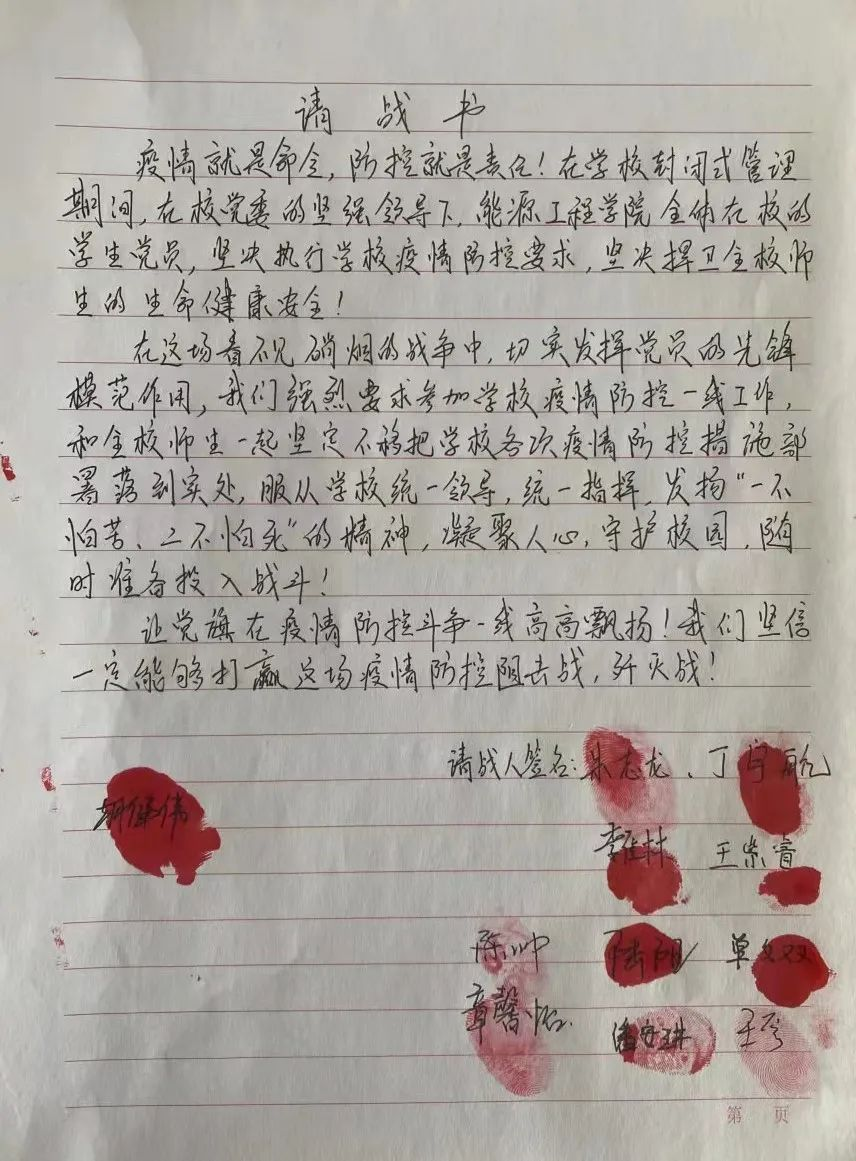 请战书
疫情就是命令，防控就是责任！在学校封闭式管理
期间，在校党委的坚强领导下，能源工程学院全体在校的
学生党员，坚决执行学校疫情防控要求，坚决捍卫全校师
生的生命健康安全！
在这场看不见硝烟的战争中，切实发挥党员的先锋
模范作用，我们强烈要求参加学校疫情防控一线工作，
和全校师生一起坚定不移把学校各次疫情防控措施部
署落到实处，服从学校统一领导，统一指挥，发扬“一不
怕苦、二不怕死”的精神，凝聚人心，守护校园，随
时准备投入战斗！
让党旗在疫情防控斗争一线高高飘扬！我们坚信
一定能够打赢这场疫情防控阻击战，歼灭战！
请战人签名：朱志龙、丁宇
李林 王紫睿
陈帅 陆阳 单双
章馨怡
潘安琪 王
第 页